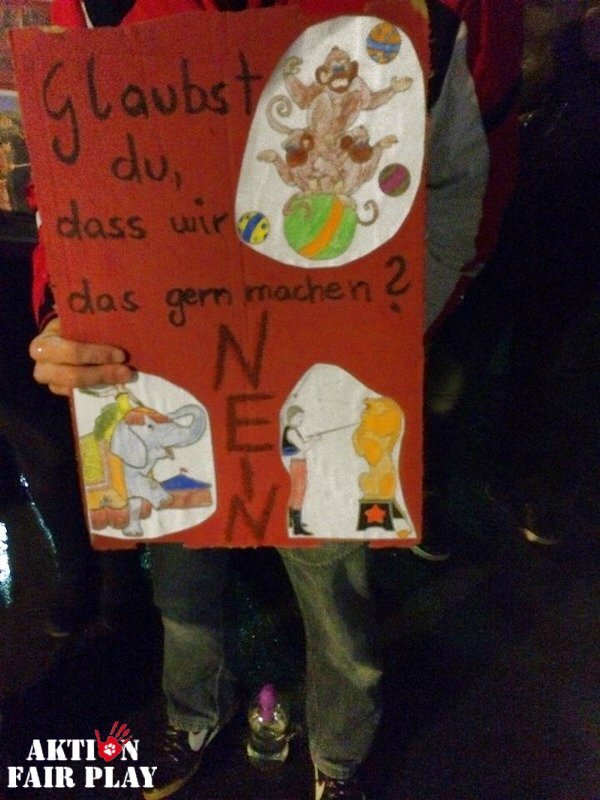 Glaubst
du,
dass wir
das gern machen?
NEIN
AKTION
FAIR PLAY